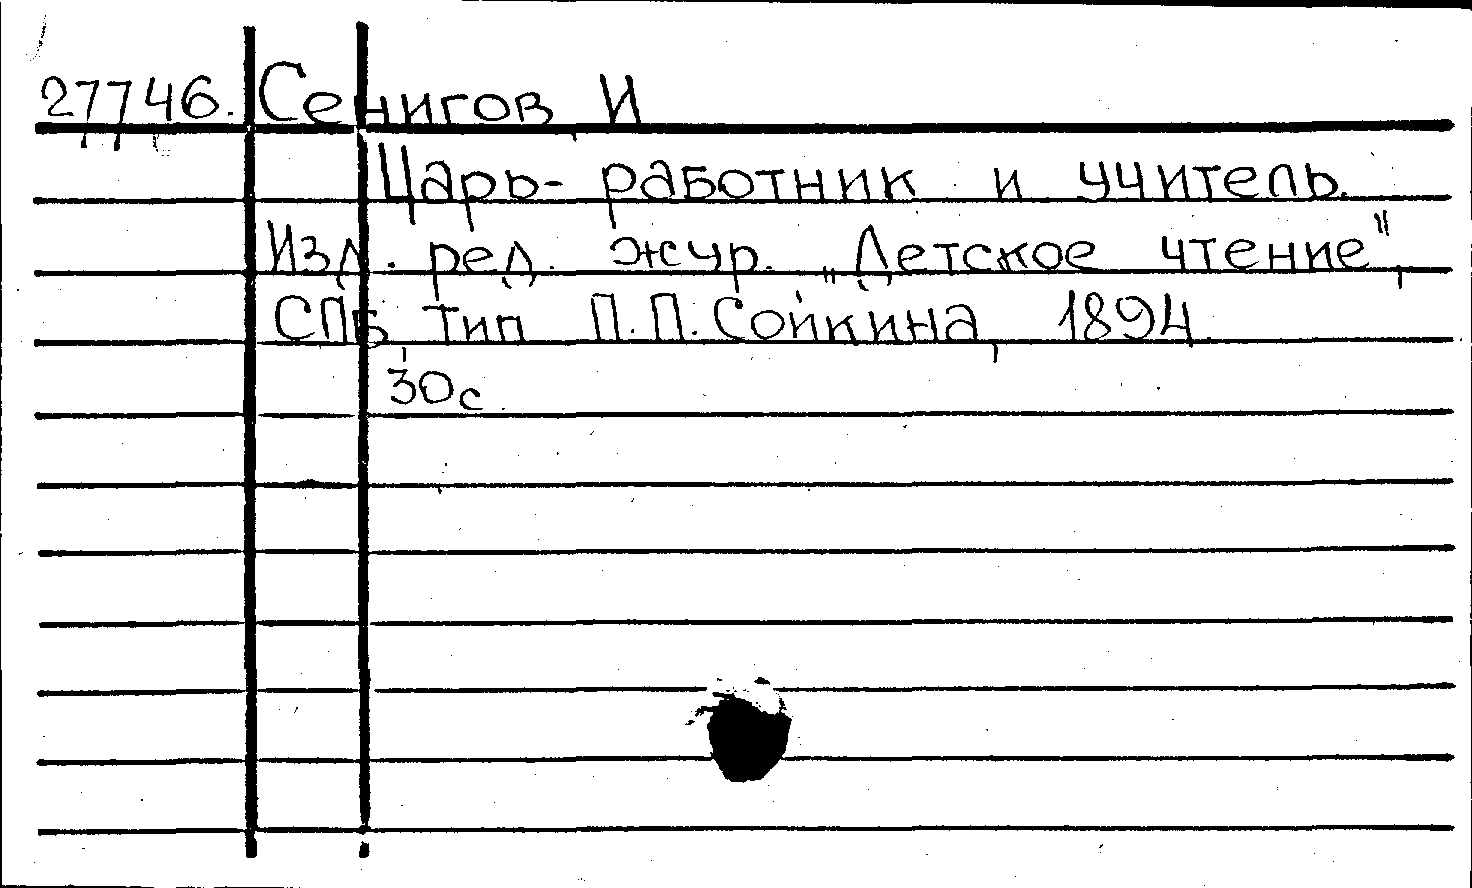 27746. Сенигов, И
Царь-работник и учитель.
Изд. ред. жур. „Детское чтение",
СПБ, тип П.П.Сойкина, 1894
30с.